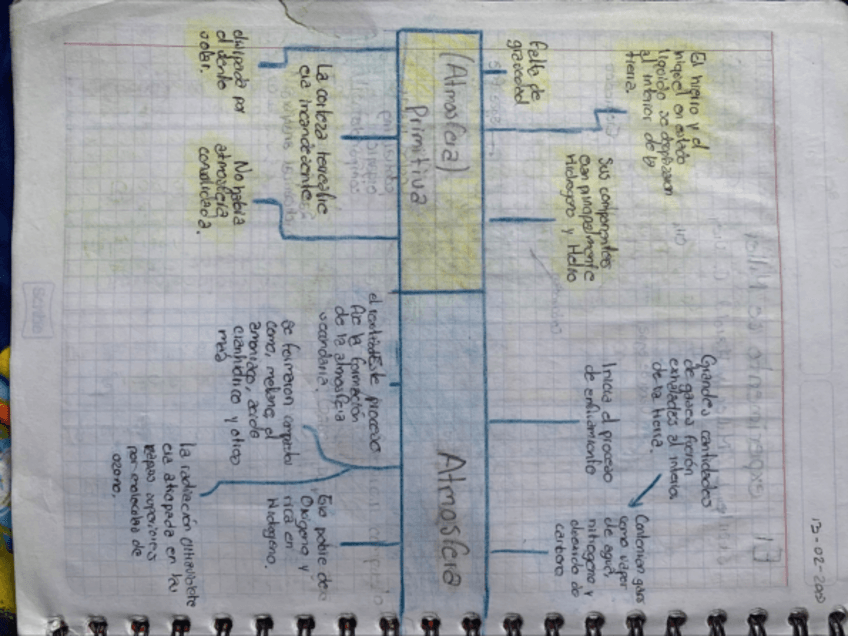 13-02-20
El hierro y el
niquel en estado
liquido se desplazaron
al interior de la
tierra.
Falta de
gravedad
Sus componentes
eran principalmente
Hidrogeno y Helio
(Atmosfera)
Primitiva
disipada por
el viento
solar.
La corteza terrestre
era incandecente
No habia
atmosfera
consolidada.
Grandes cantidades
de gases fueron
al interior
de la tierra.
Inicia el proceso
de enfriamiento
Contenian gases
como vapor
de agua,
nitrogeno y
dioxido de
carbono
Atmosfera
el este proceso
la formación
de la atmosfera
secundaria.
Se formaron compuestos
como, metano, el
amoniaco, acido
cianhidrico y otros
mas
La radiación ultravioleta
era atrapada en las
capas superiores
por moleculas de
ozono.
Era pobre de
Oxigeno y
rica en
Hidrogeno.
scribe